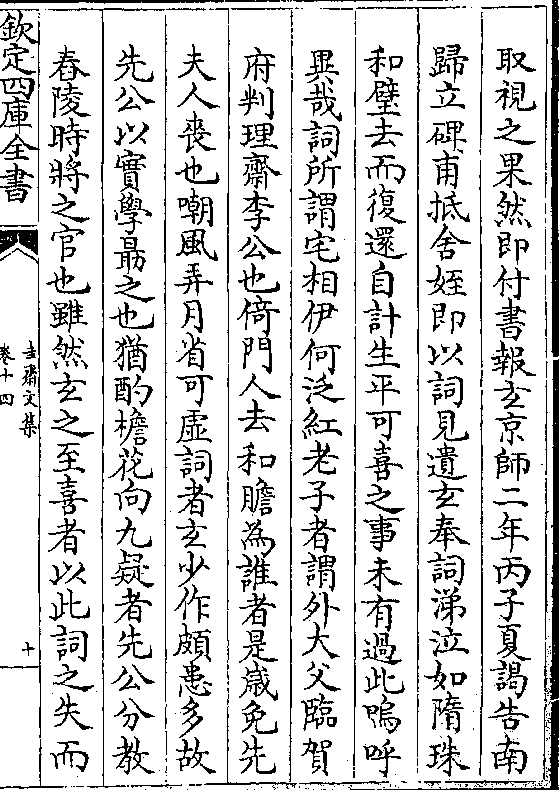 取視之果然即付書報玄京師二年丙子夏謁告南
歸立碑甫抵舍姪即以詞見遺玄奉詞涕泣如隋珠
和璧去而復還自計生平可喜之事未有過此嗚呼
異哉詞所謂宅相伊何泛紅老子者謂外大父臨賀
府判理齋李公也倚門人去和膽為誰者是歲免先
夫人喪也嘲風弄月省可虛詞者玄少作頗患多故
先公以實學朂之也猶酌檐花向九疑者先公分教
舂陵時將之官也雖然玄之至喜者以此詞之失而
欽定四庫全書
圭齋文集
卷十四
十